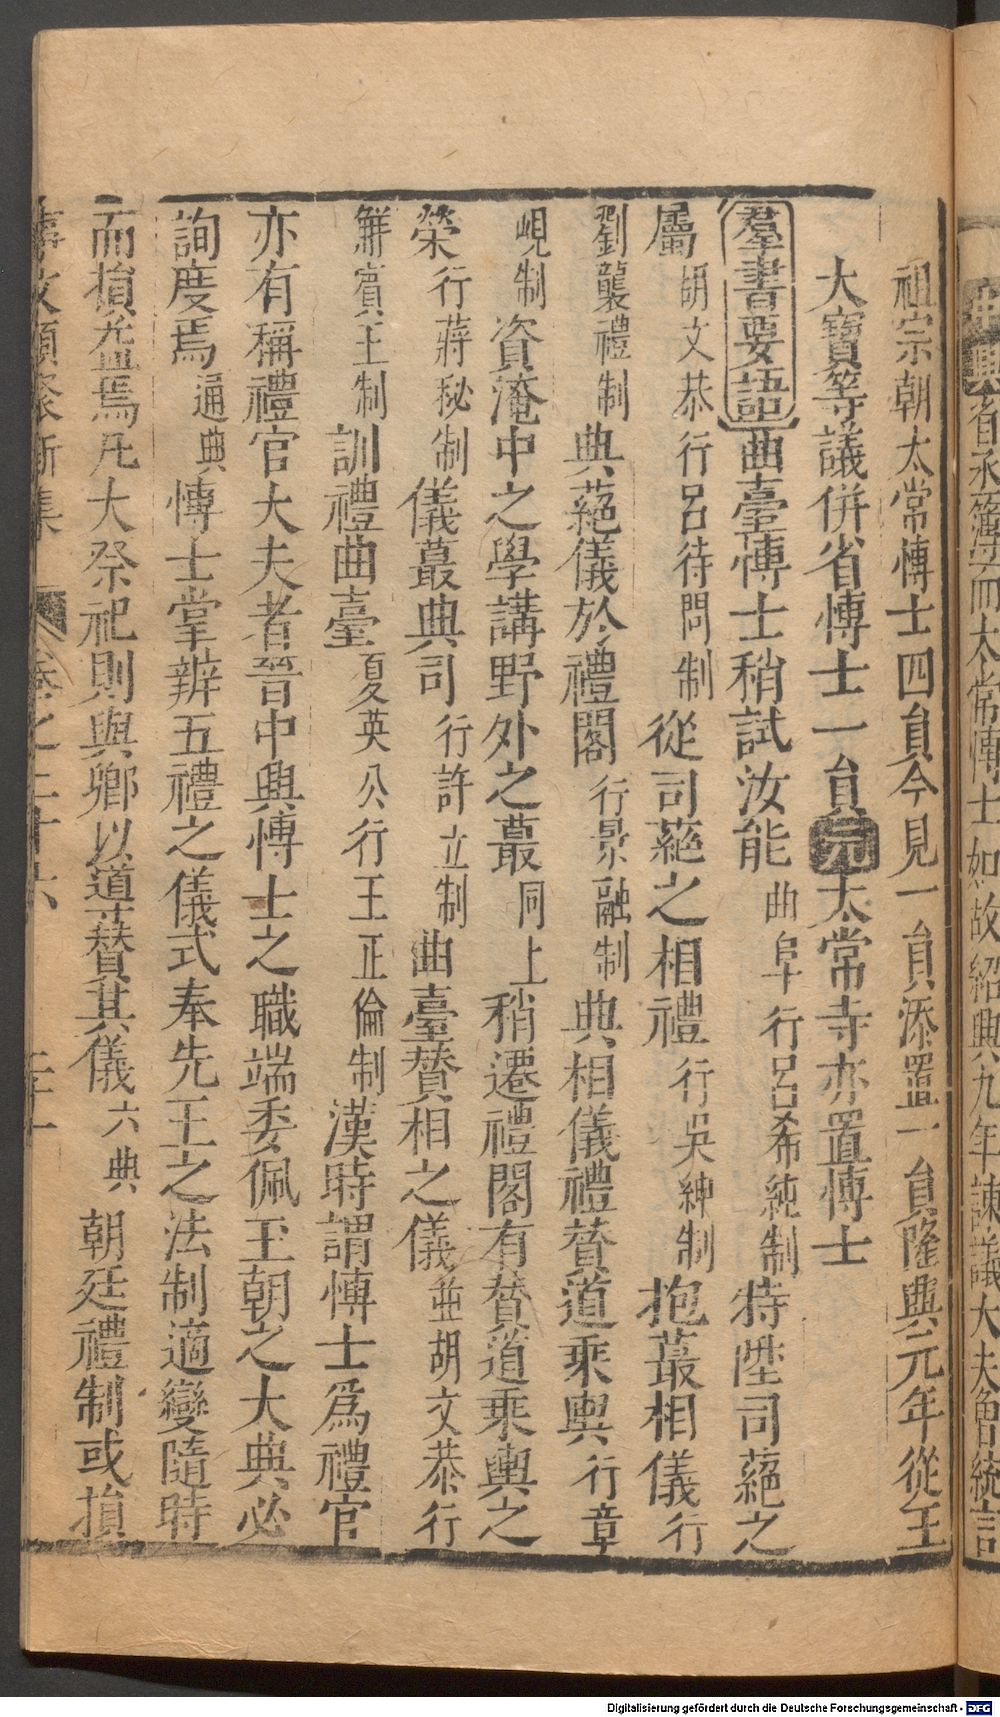 省丞簿而太常博士如故紹興九年諫議大夫曾統言
祖宗朝太常博士四員今見一員添置一員隆興元年從王
大寶等議併省博士一員元太常寺亦置博士
羣書要語曲臺博士稍試汝能曲阜行呂希純制特陞司蕝之
屬胡文恭行呂待問制從司蕝之相禮行吳紳制抱蕞相儀行
劉襲禮制典蕝儀於禮閣行景融制典相儀禮贊道乘輿行章
峴制資淹中之學講野外之蕞同上稍遷禮閣有贊道乘輿之
榮行蔣秘制儀蕞典司行許立制曲臺贊相之儀並胡文恭行
鮮賓王制訓禮曲臺夏英公行王正倫制漢時謂博士爲禮官
亦有稱禮官大夫者晉中興博士之職端委佩玉朝之大典必
詢度焉通典博士掌辨五禮之儀式奉先王之法制適變隨時
而損益焉凡大祭祀則與卿以道贊其儀六典朝廷禮制或損
事文類聚新集 卷之三十六 二十一
Digitalisierung gefördert durch die Deutsche Forschungsgemeinschaft - DFG